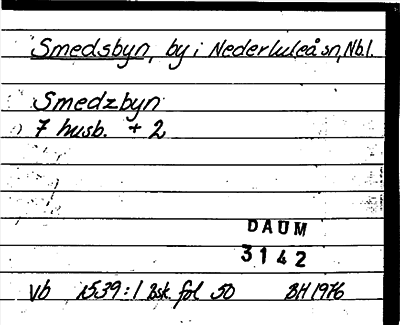 Smedsbyn, by i Nederluleå sn, Nb.l.
Smedzbyn
7 husb. + 2
DAUM
3142
Vb 1539:1 Bsk. fol 50 BH 1976